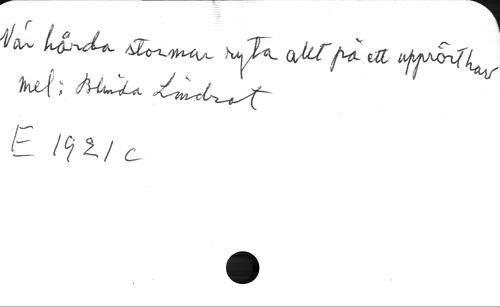 När hårda stormar ryta allt på ett upprört hav
mel: Blinda Lindrot
E 1921 c